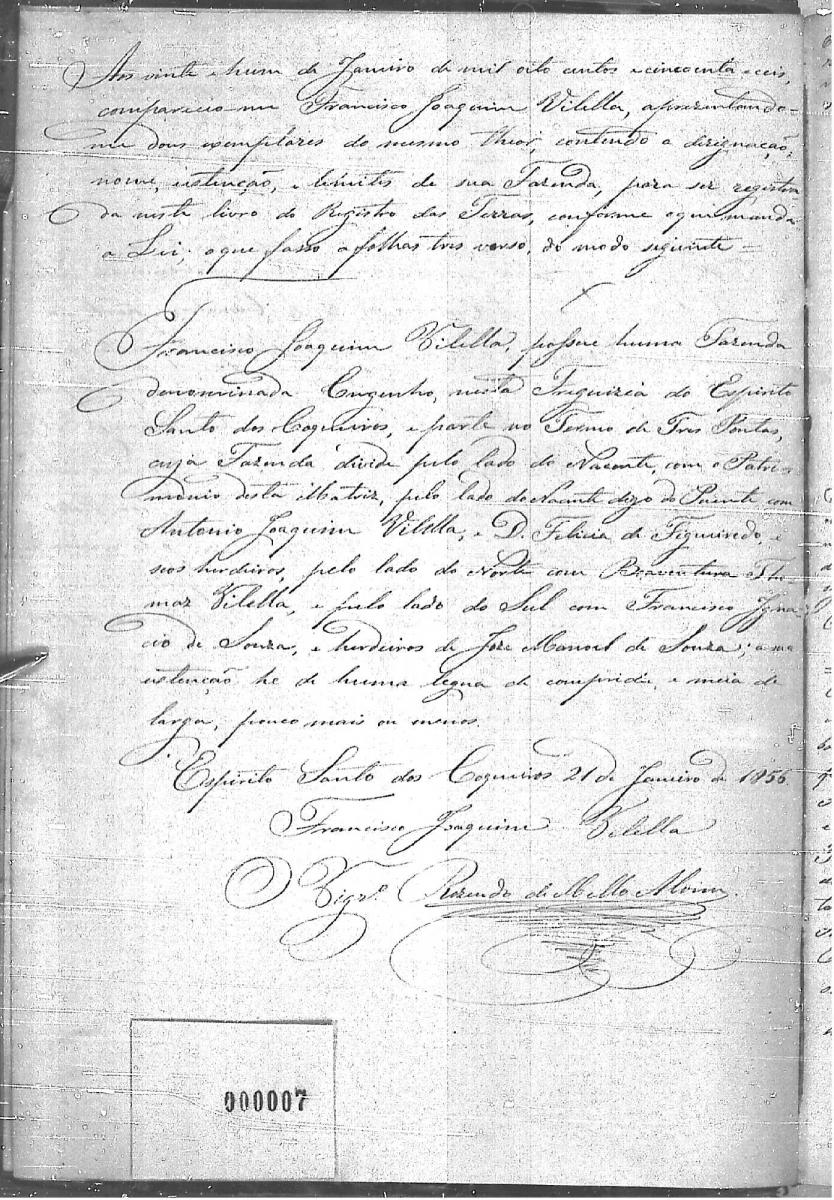 Aos vinte e hum de Janeiro de mil oito centos e cincoenta e ceis,
compareceo-me Francisco Joaquim Vilella, aprezentando-
me dous exemplares do mesmo theor, contendo a dezignação,
nome, estenção, e limites de sua Fazenda, para ser registra-
da neste livro do Registro das Terras, conforme o que manda
a Lei; o que fasso a folhas tres verso, do modo seguinte =
Francisco Joaquim Vilella, possue huma Fazenda
denominada Engenho, nesta Freguizia do Espirito
Santo dos Coqueiros, e parte no Termo de Tres Pontas,
cuja Fazenda divide pelo lado do Nacente, com o Patri-
monio desta Matriz, pelo lado do Nacente digo do Puente com
Antonio Joaquim Vilella, e D. Felicia de Figueiredo, e
seos herdeiros, pelo lado do Norte com Boaventura e Tho
maz Vilella, e pelo lado do Sul com Francisco Igna
cio de Souza, e herdeiros de Joze Manoel de Souza; a sua
estenção he de huma legua de comprido, e meia de
larga, pouco mais ou menos.
Espirito Santo dos Coqueiros 21 de Janeiro de 1856
Francisco Joaquim Vilella
Vigr.º Rozendo de Mello
000007